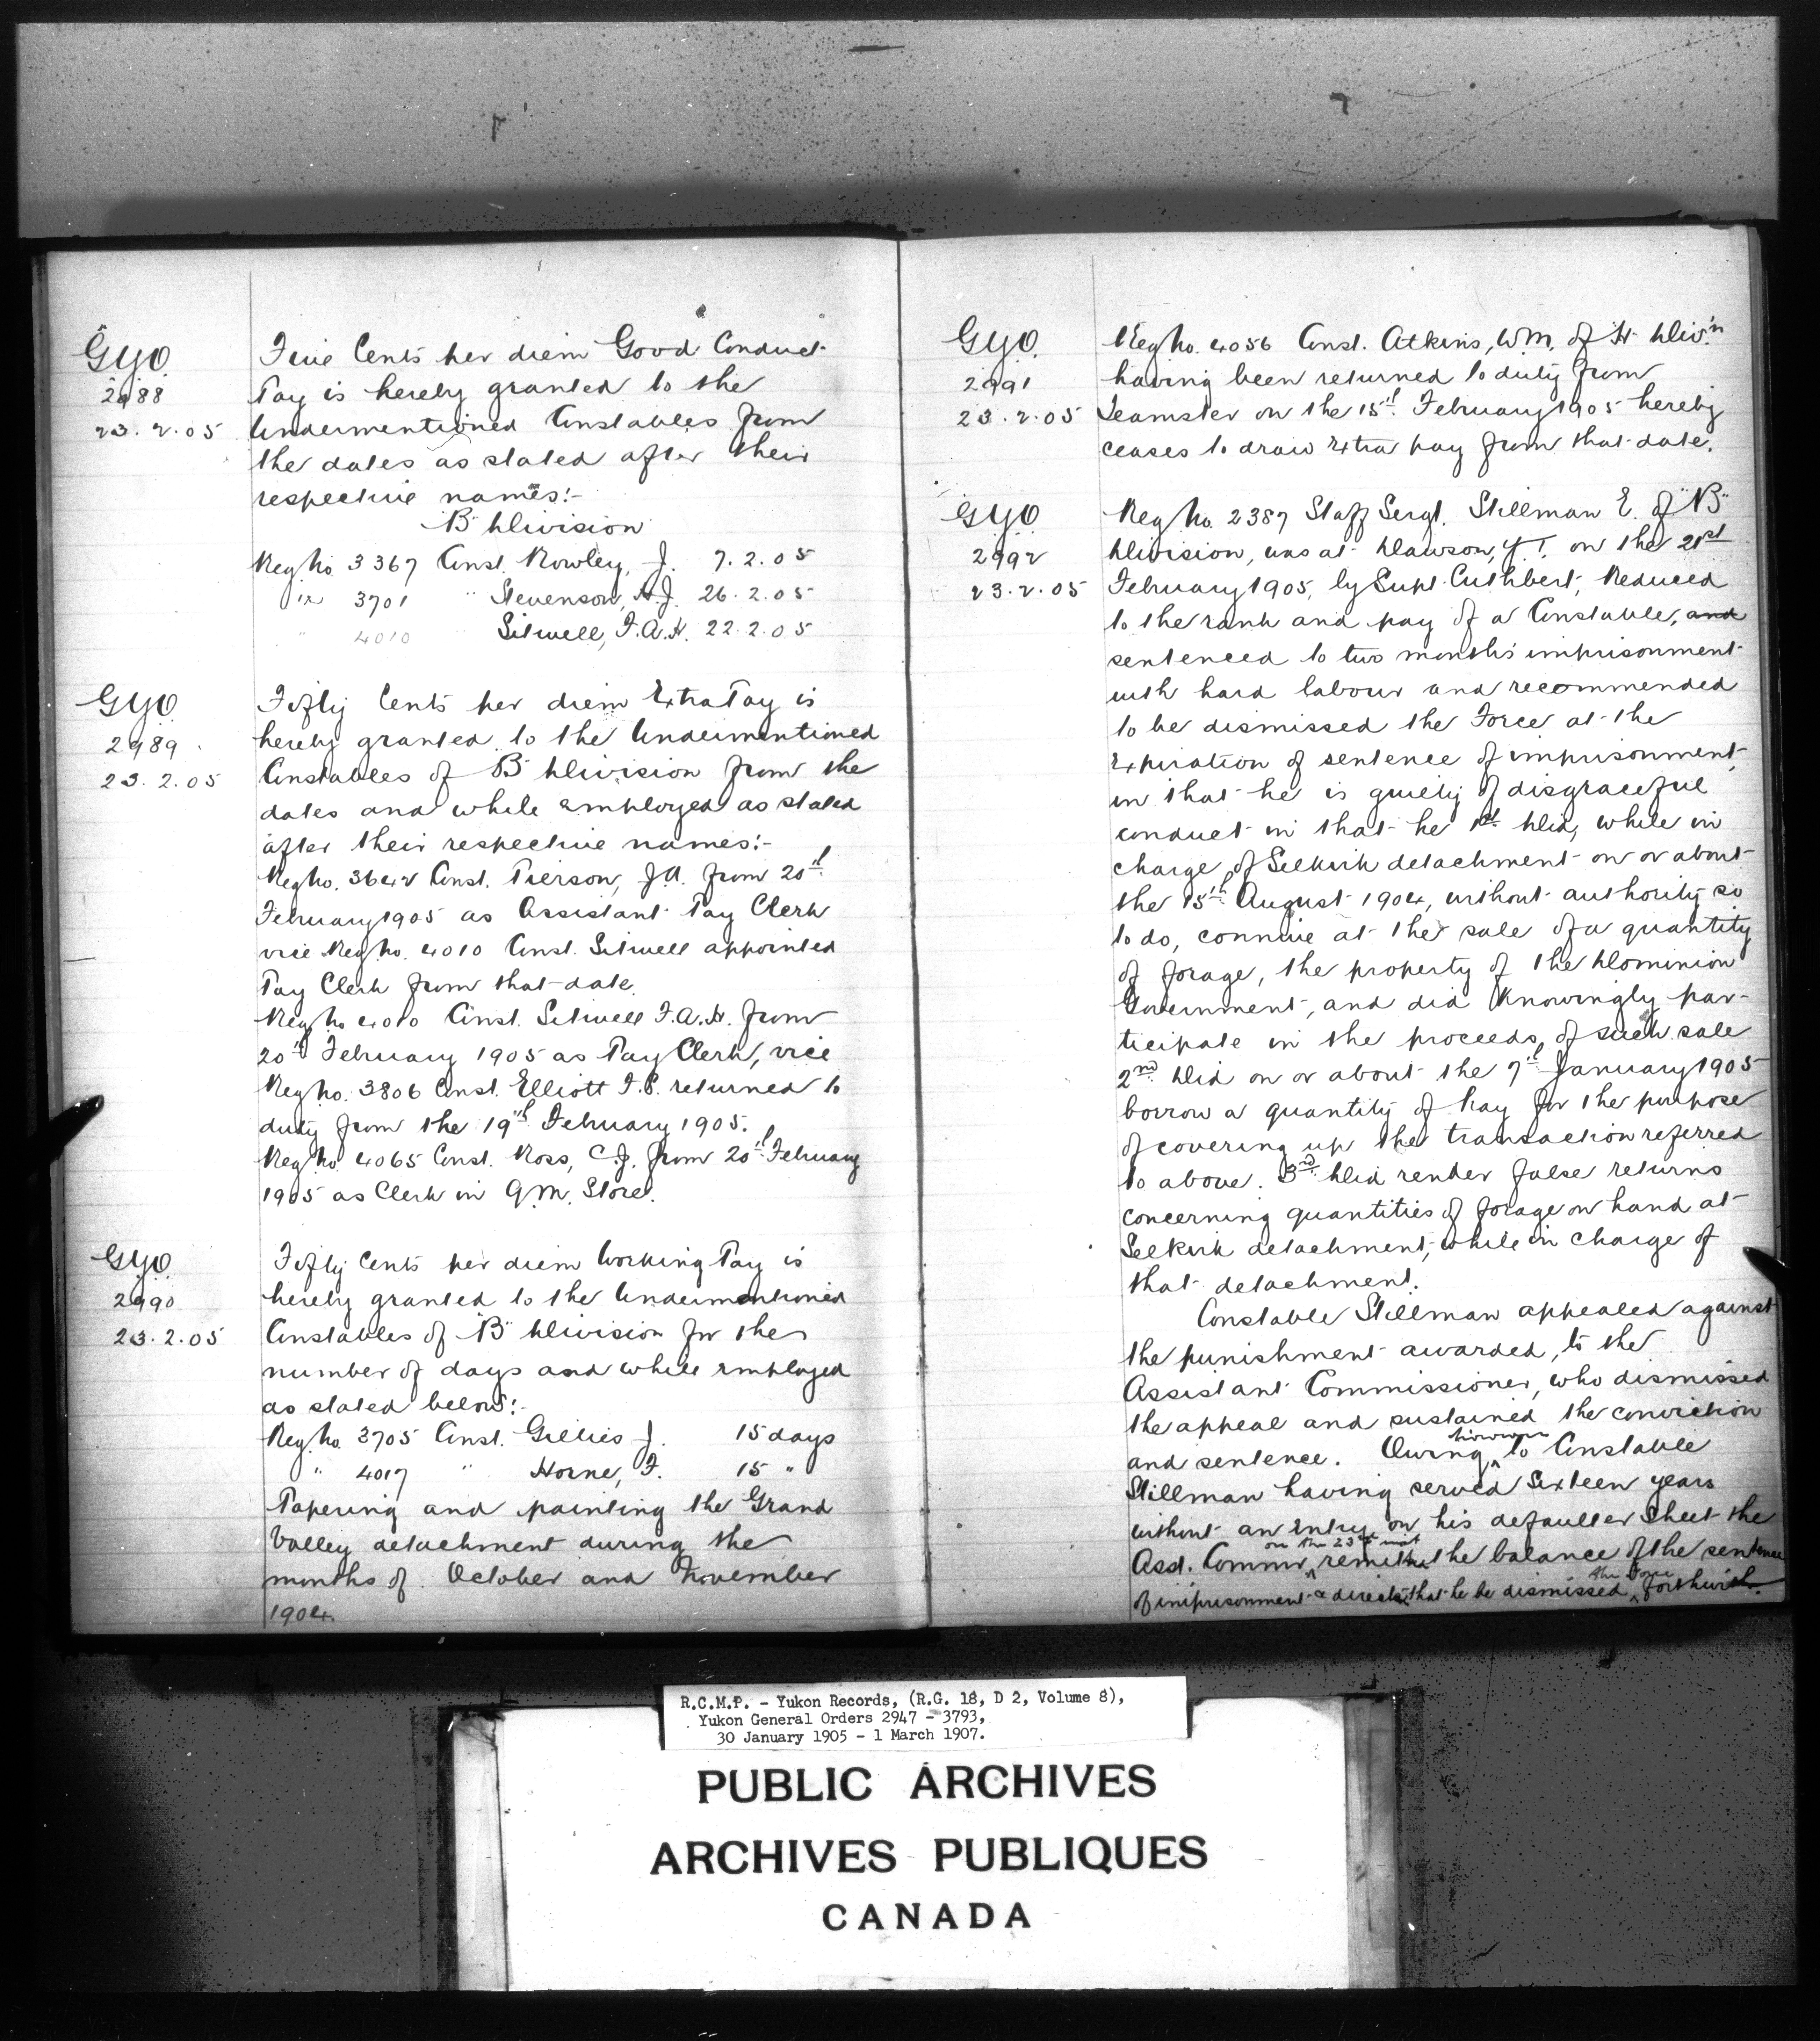 GYO
2988
23.2.05
Five Cents per diem Good Conduct
Pay is hereby granted to the
Undermentioned Constables from
the dates as stated after their
respective names:-
"B" Division
Reg No. 3367 Const. Rowley, J. 7.2.05
" 3701 " Stevenson, A.J. 26.2.05
" 4010 Sitwell, F.A.H. 22.2.05
GYO
2989
23.2.05
Fifty Cents per diem Extra Pay is
hereby granted to the Undermentioned
Constables of "B" Division from the
dates and while employed as stated
after their respective names:-
Reg No. 3642 Const. Pierson, J.A. from 20th
February 1905 as Assistant Pay Clerk
vice Reg No. 4010 Const. Sitwell appointed
Pay Clerk from that date.
Reg No 4010 Const. Sitwell F.A.H. from
20th February 1905 as Pay Clerk, vice
Reg No. 3806 Const. Elliott F.P. returned to
duty from the 19th February 1905.
Reg No 4065 Const. Ross, C.J. from 20th February
1905 as Clerk in Q.M. Store.
GYO
2990
23.2.05
Fifty Cents per diem Working Pay is
hereby granted to the Undermentioned
Constables of "B" Division for the
number of days and while employed
as stated below:-
Reg. No. 3705 Const. Gillies J. 15 days
" 4017 " Horne, F. 15 "
Papering and painting the Grand
Valley detachment during the
months of October and November
1904.
GYO.
2991
23.2.05
Reg No. 4056 Const. Atkins, W.M. of H Divis'n
having been returned to duty from
teamster on the 15th February 1905 hereby
ceases to draw extra pay from that date.
GYO
2992
23.2.05
Reg No. 2387 Staff Sergt. Stillman E. of "B"
Division, was at Dawson, Y.T. on the 21st
February 1905, by Supt. Cuthbert, Reduced
to the rank and pay of a Constable, and
sentenced to two months' imprisonment
with hard labour and recommended
to be dismissed the Force at the
expiration of sentence of imprisonment,
in that he is guilty of disgraceful
conduct in that he 1st Did, while in
charge of Selkirk detachment on or about
the 15th August 1904, without authority so
to do, connive at the sale of a quantity
of forage, the property of the Dominion
Government, and did Knowingly par-
ticipate in the proceeds of such sale
2nd Did on or about the 7th January 1905
borrow a quantity of hay for the purpose
of covering up the transaction referred
to above. 3rd Did render false returns
concerning quantities of forage on hand at
Selkirk detachment, while in charge of
that detachment.
Constable Stillman appealed against
the punishment awarded, to the
Assistant Commissioner, who dismissed
the appeal and sustained the conviction
and sentence. Owing however to Constable
Stillman having served Sixteen years
without an Entry on his defaulter Sheet the
Asst. Commr. on the 23rd inst remitted the balance of the sentence
of imprisonment & directed that he be dismissed the Force forthwith.
R.C.M.P. - Yukon Records, (R.G. 18, D 2, Volume 8),
Yukon General Orders 2947 - 3793,
30 January 1905 - 1 March 1907.
PUBLIC ARCHIVES
ARCHIVES PUBLIQUES
CANADA